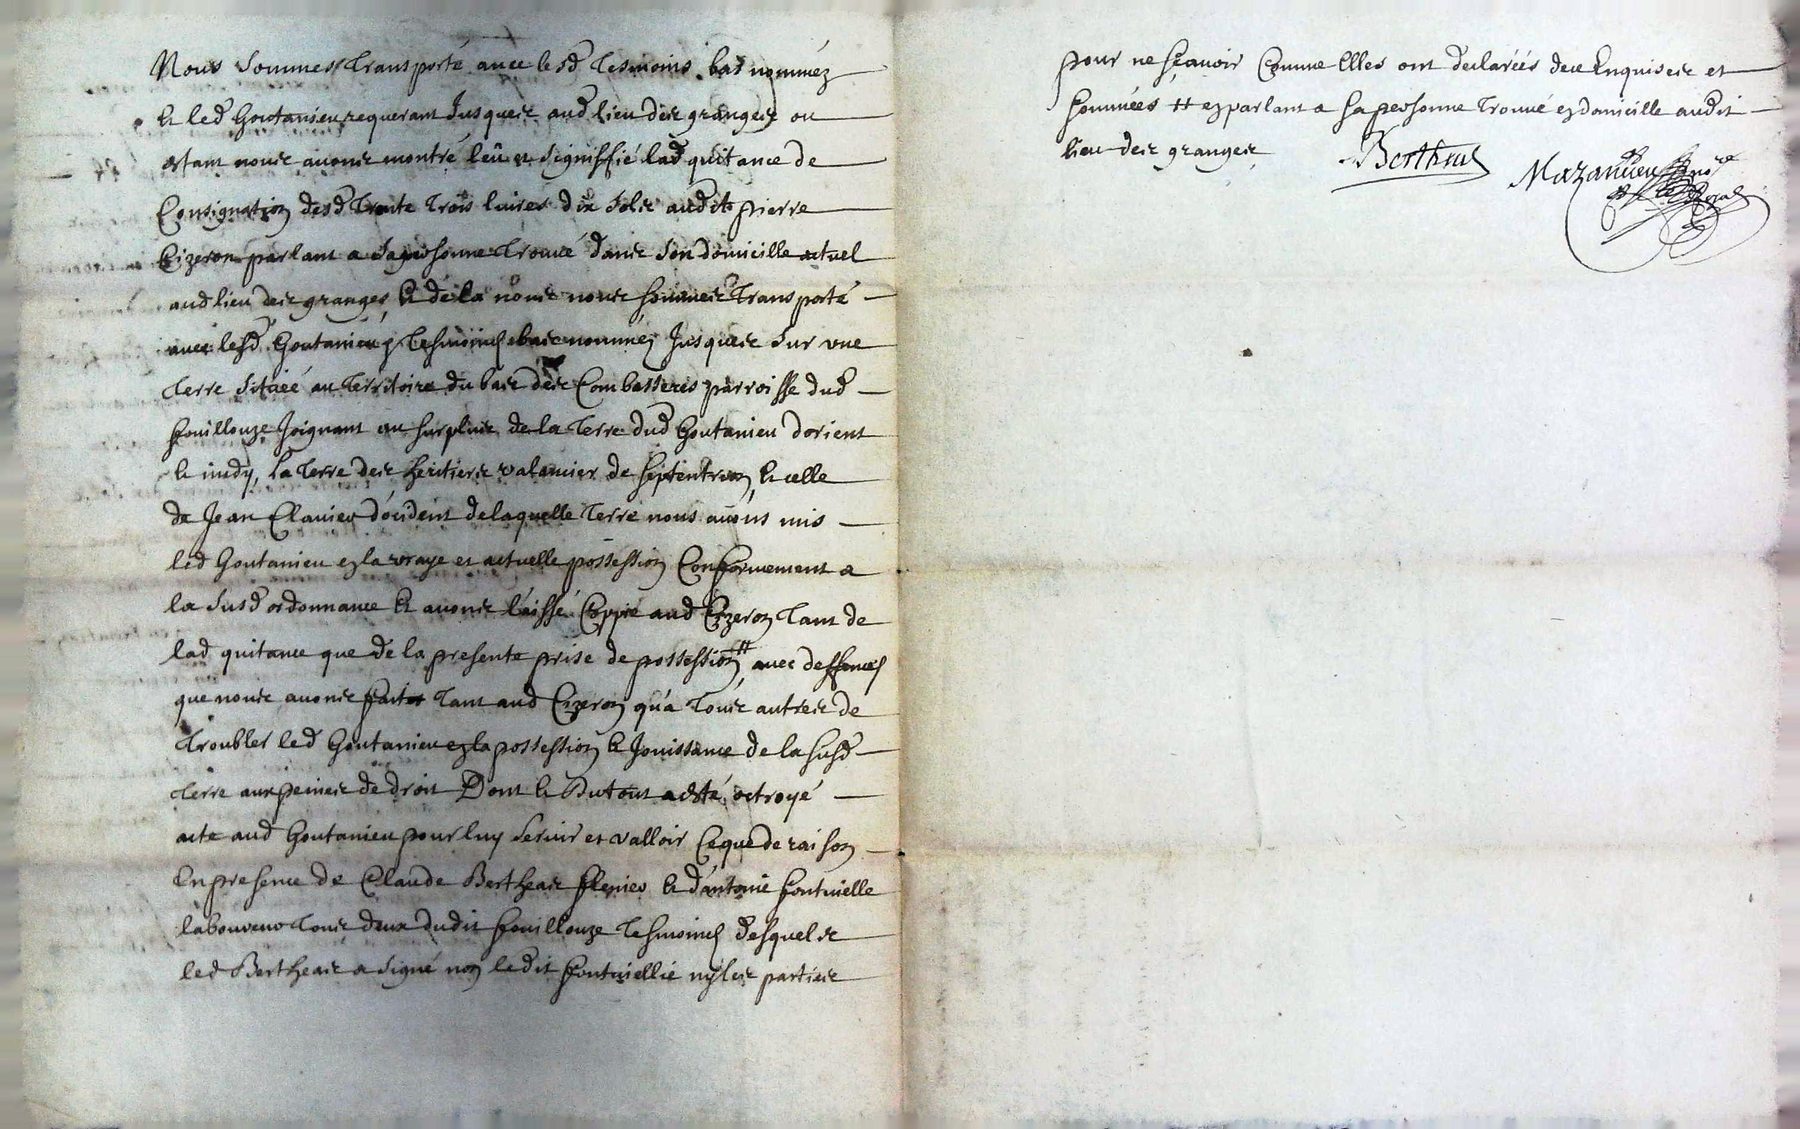 Nous sommes transporté avec lesd tesmoins bas nommez
et led Goutanieu requerant Jusques aud lieu des granges ou
estant nous avons montré leü et signiffié lad quitance de
Consignation desd trente trois livres dix sols audit pierre
Cizeron parlant a sa personne trouvé dans son domicille actuel
aud lieu des granges, et de la nous nous sommes transporté
avec lesd Goutanieu et tesmoins bas nommez Jusques sur une
terre située au territoire du bas des Combasseres parroisse dud
fouillouze Joignant au surplus de la terre dud Goutanieu dorient
et midy, la terre des heritiers valancier de septentrion, et celle
de Jean Clavier doccident de laquelle terre nous avons mis
led Goutanieu en la vraye et actuelle possession Conformement a
la susd ordonnance et avons laissé Coppie aud Cizeron tant de
lad quitance que de la presente prise de possession # avec deffences
que nous avons fait tant aud Cizeron qu'a tous autres de
troubler led Goutanieu en la possession et Jouissance de la susd
terre aux peines de droit Dont et Dutout a esté octroyé
acte aud Goutanieu pour luy servir et valloir Ceque de raison
En presence de Claude Bertheas et d'antoine fontvielle
laboureur tous deux dudit fouillouze tesmoins desquels
led Bertheas a signé non ledit fontviellie ny les parties
pour ne sçavoir Comme Elles ont declarées de ce Enquises et
sommées # en parlant a sa personne trouvé en domicille audit
lieu des granges
Bertheas
Mazanieu no.re
Royal